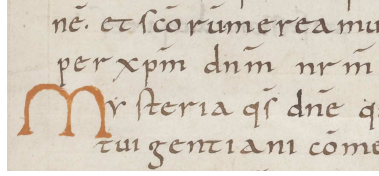 nē. et scōrūmereamu
per xp̄m dnm̄ nr̄m̄
Mysteria qs̄ dnē
tui gentiani cōme